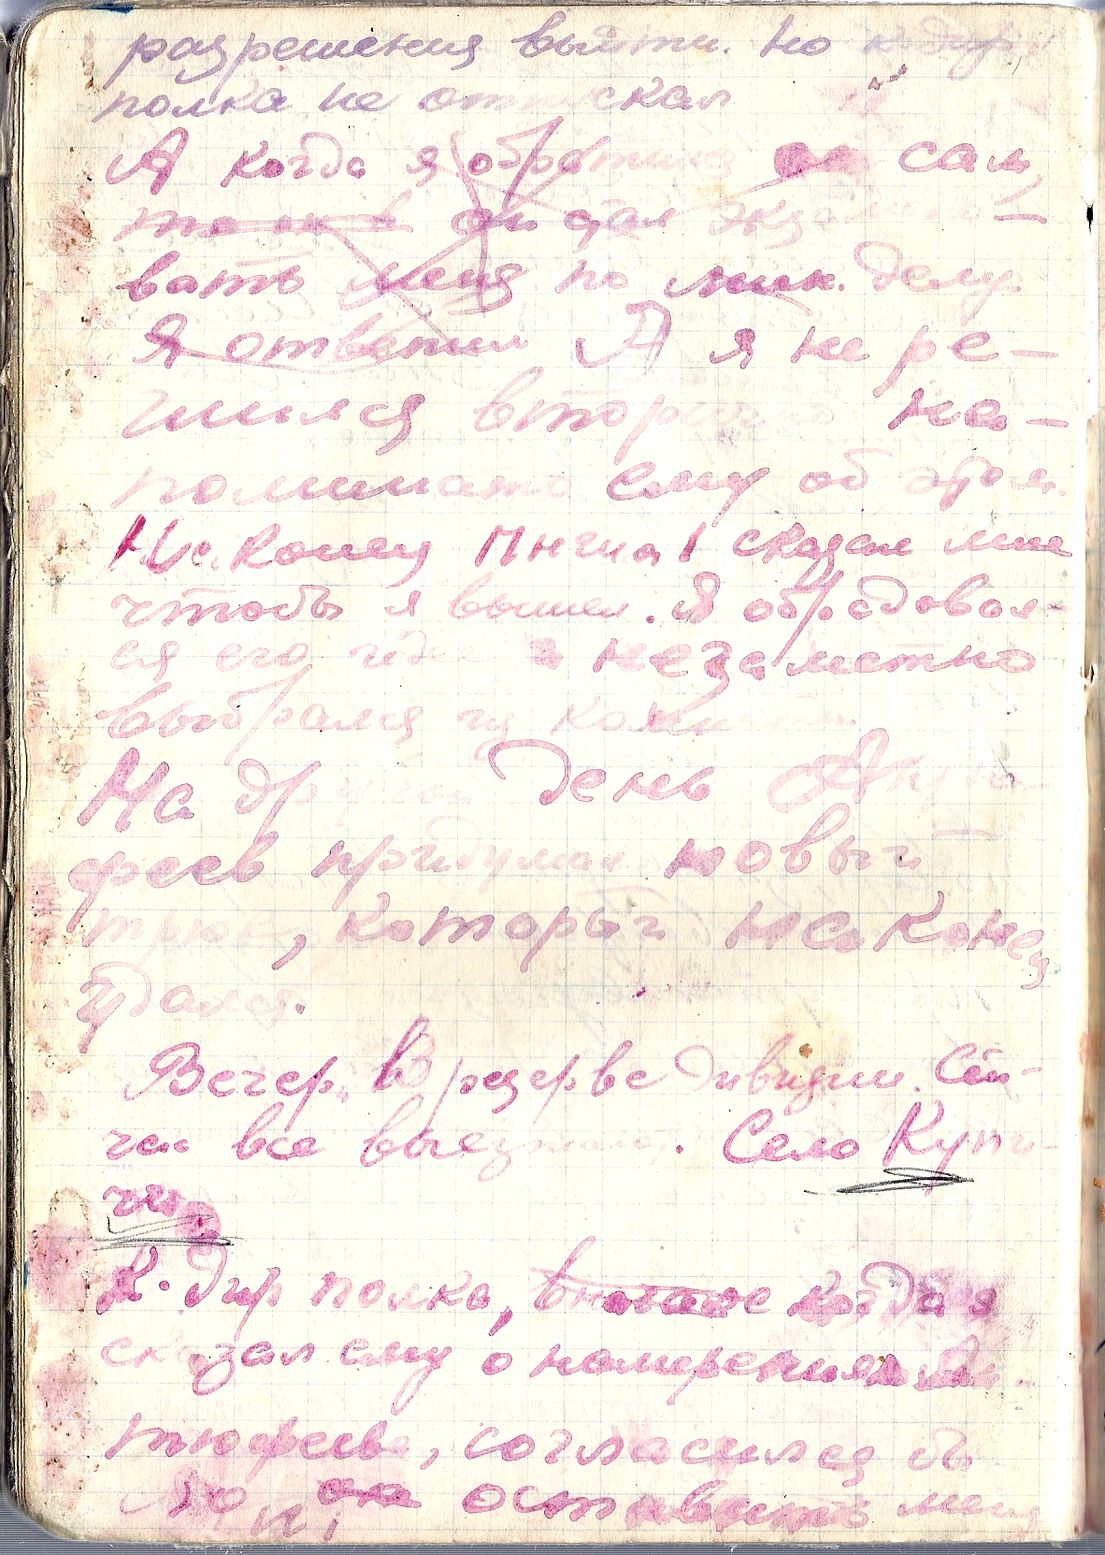 разрешения выйти. Но к-дир
полка не отпускал
А когда я обратился сам,
то он в он стал экзамено-
вать меня по мин. делу.
Я ответил А я не ре-
шился вторично на-
поминать ему об этом.
Наконец сказал мне
чтобы я вышел. Я обрадовал-
ся его идее и незаметно
выбрался из комнаты.
На другой день
феев придумал новый
трюк, который наконец
удался.
Вечер. В резерве дивизии. Сей-
час все выезжают. Село Купи-
чи
К-дир полка, вначале когда я
сказал ему о намерениях
тюфеева, согласился бы-
ло, он оставить меня